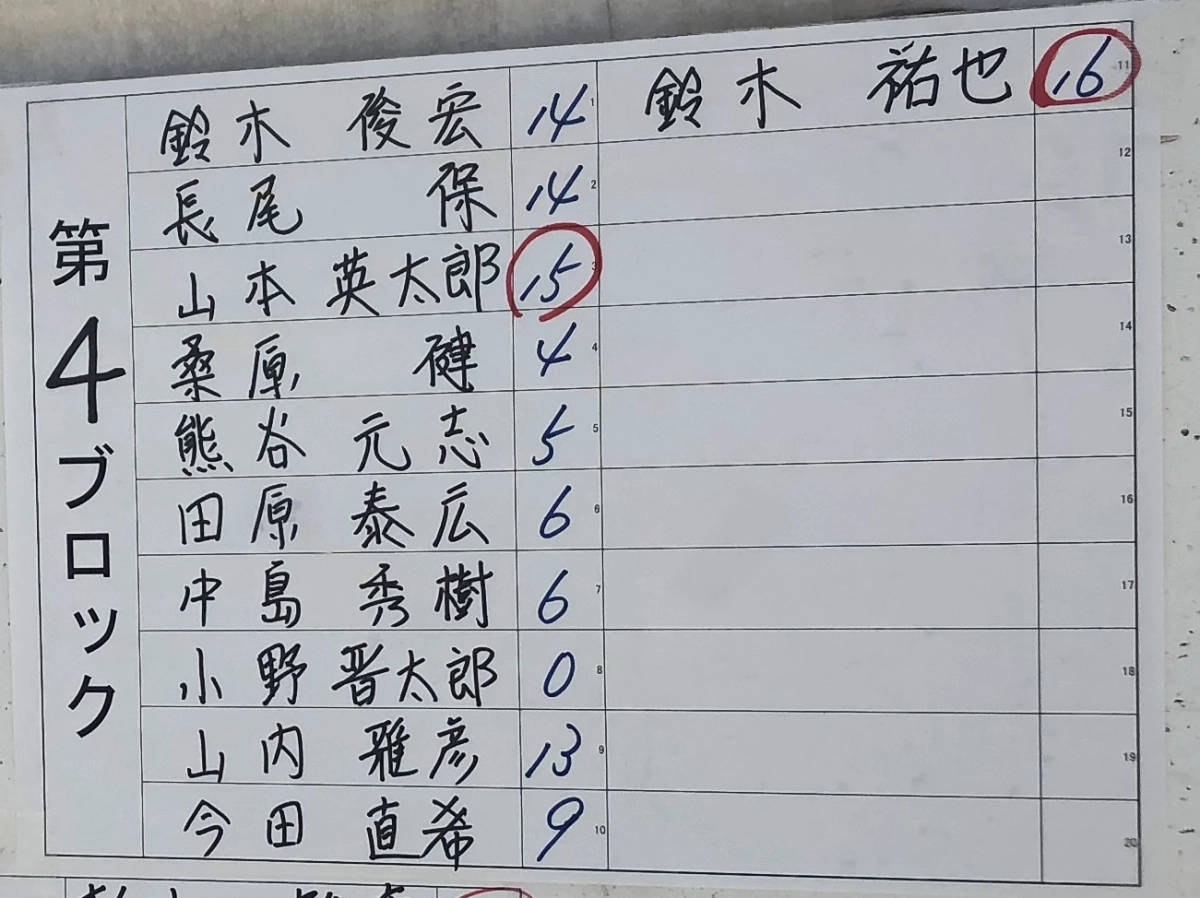 第4ブロック
鈴木 俊宏 14 1
長尾 保 14 2
山本 英太郎 15 3
桑原 健 4 4
熊谷 元志 5 5
田原 泰広 6 6
中島 秀樹 6 7
小野 晋太郎 0 8
山内 雅彦 13 9
今田 直希 9 10
鈴木 祐也 16 11
12
13
14
15
16
17
18
19
20